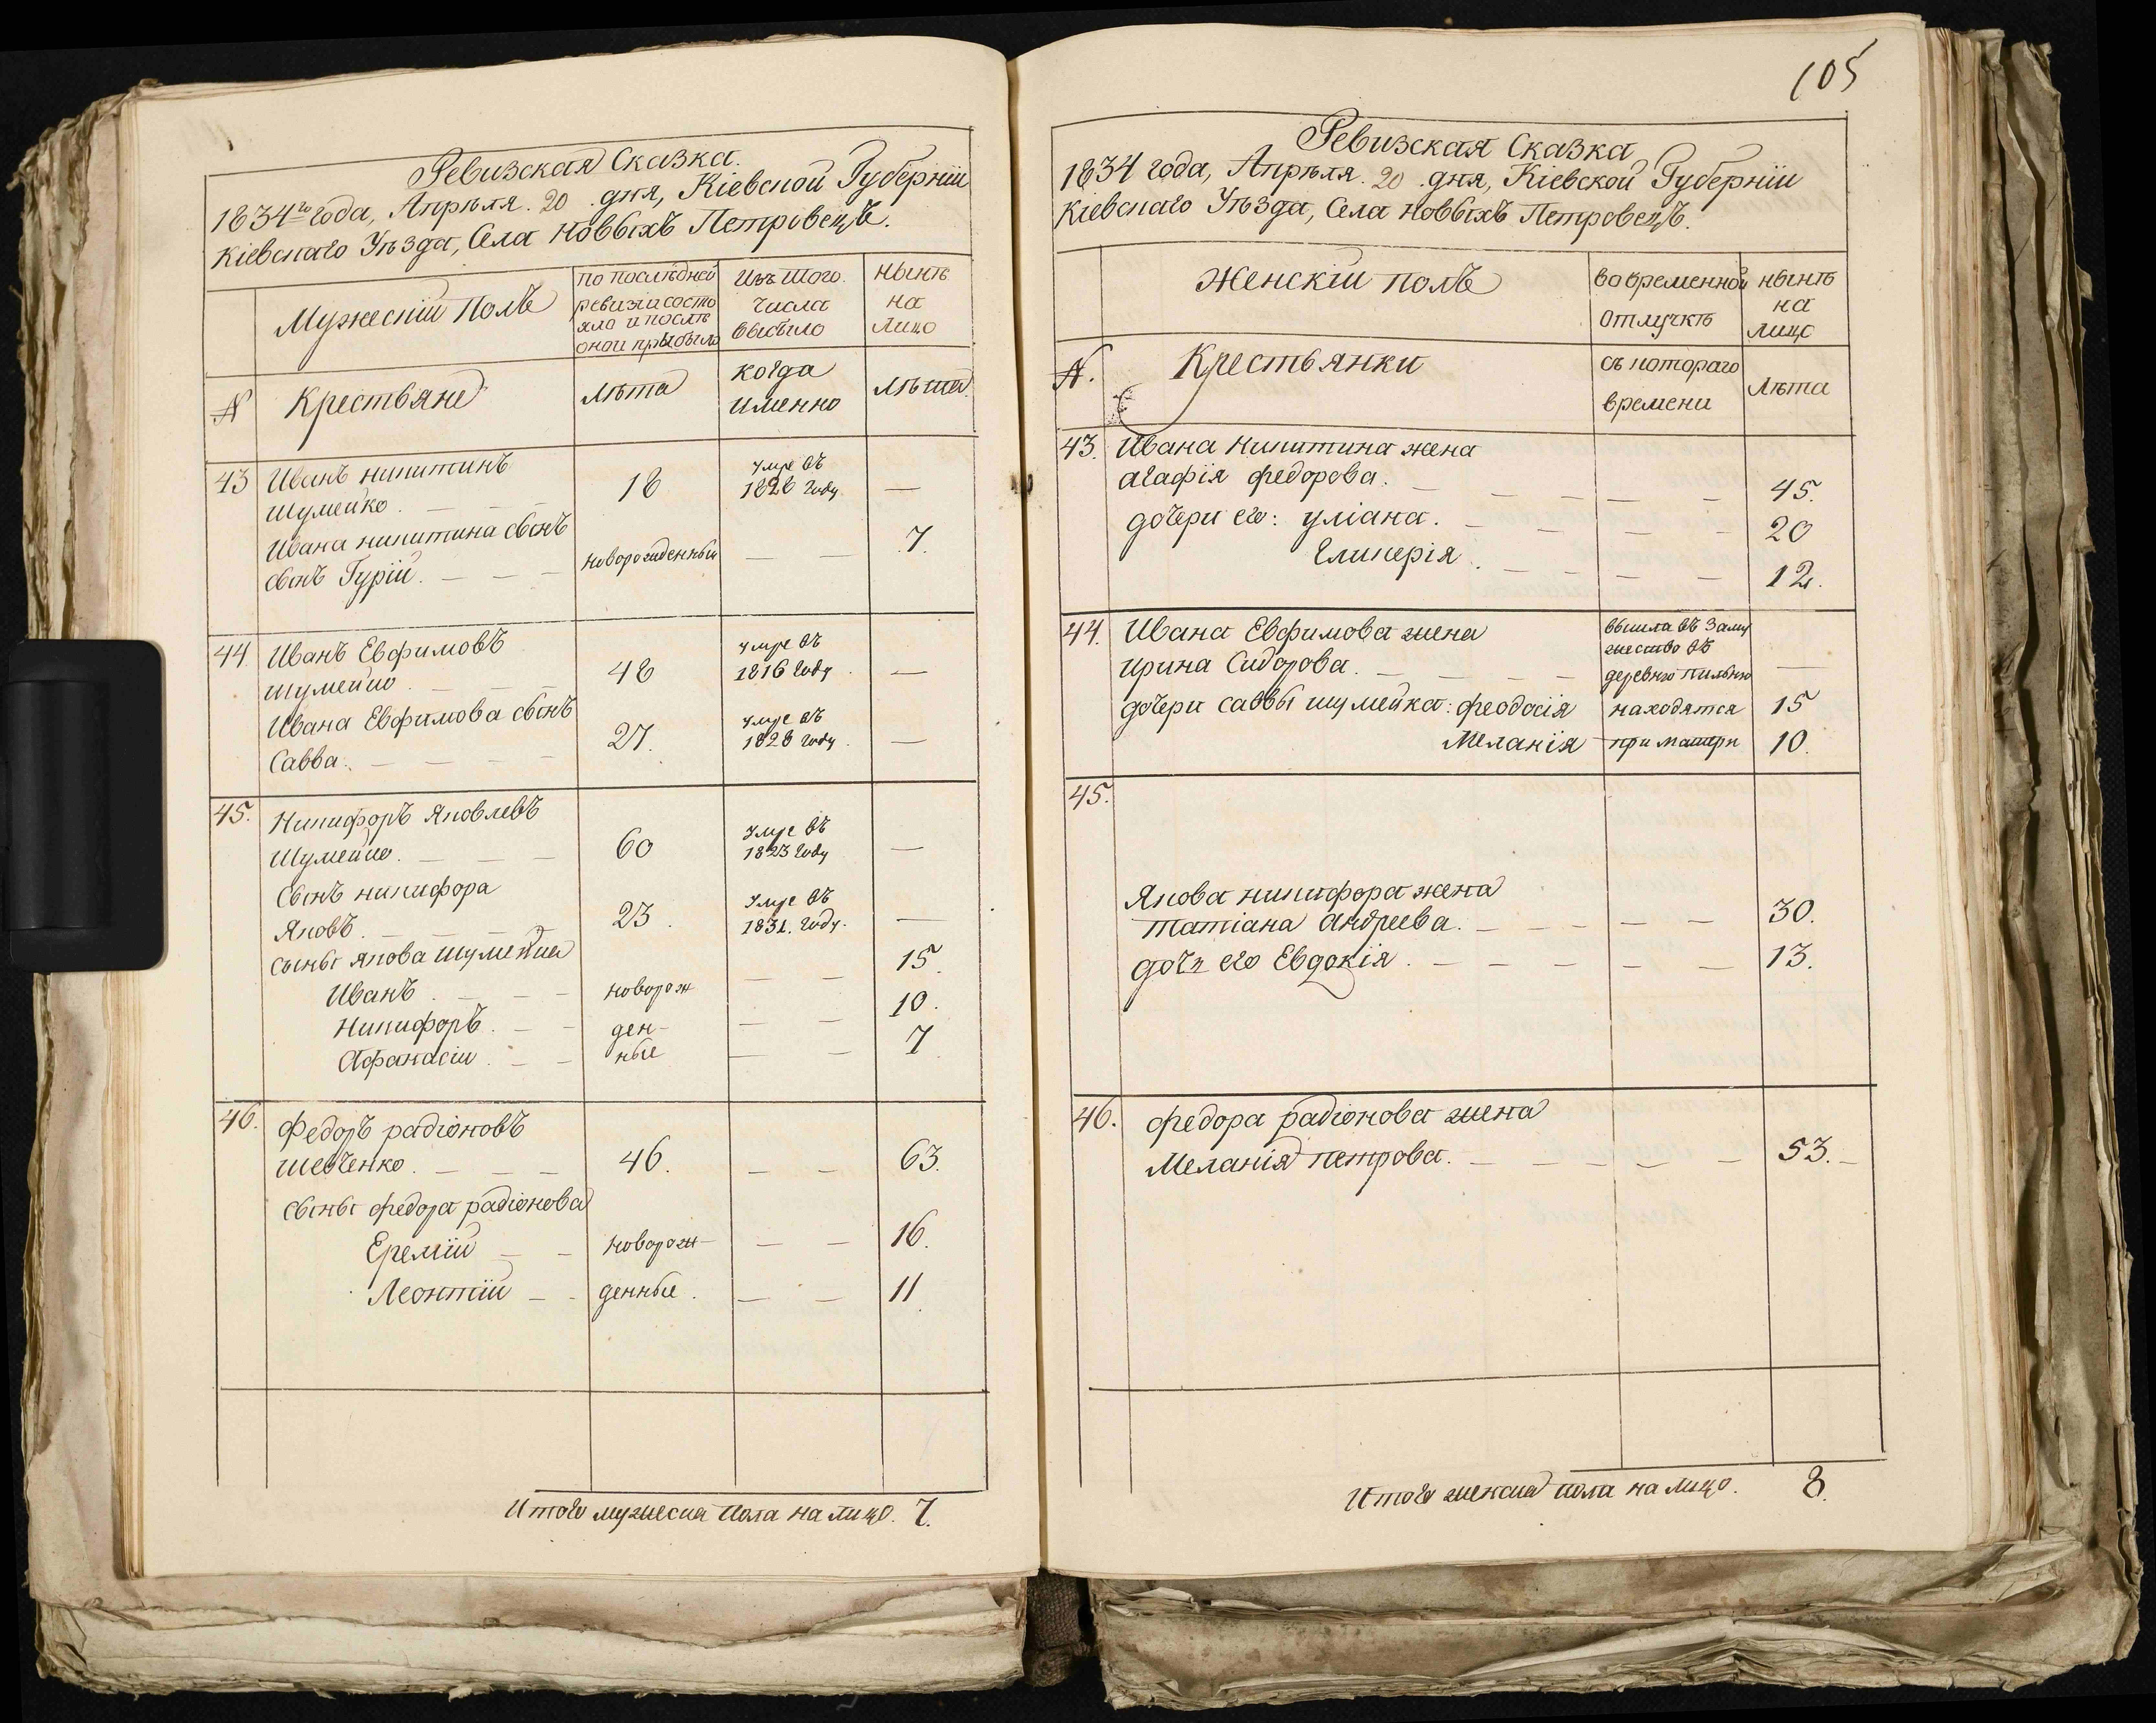 Ревизская Сказка.
1834го года, Апрѣля. 20 .дня, Кіевской Губерніи
Кіевскаго Уѣзда, Села новыхъ Петровецъ.
Мужескій Полъ
по послѣдней
ревизіи состо
яло и послѣ
оной прибыло
Изъ Того.
числа
выбыло
нынѣ
на
лицо
N
Крестьяне
лѣта
когда
именно
лѣта.
43 Иванъ никитинъ
Шумейко. 18 умре въ 1828 году —
Ивана никитина сынъ
сынъ Гурій. — — — новорожденный — — 7.
44. Иванъ Евфимовъ
шумейко. — — — 48 умре въ 1816 году. —
Ивана Евфимова сынъ
Савва. — — — — 27. умре въ 1828 году. —
45. Никифоръ Яковлевъ
Шумейко. — — — 60 умре въ 1823 году —
Сынъ никифора
Яковъ. — — — — 23. умре въ 1831. году. —
сыны якова шумейка
Иванъ. — — — новорож — — 15.
Никифоръ. — — ден- — — 10.
Афанасій. — — ные — — 7
46. Федоръ радіоновъ
шевченко. — — — 46. — — 63.
сыны федора радіонова
Еремій — — новорож- — — 16.
Леонтій — - денные. — — 11.
Итого мужеска пола на лицо. 7.
105
Ревизская Сказка
1834 года, Апрѣля. 20 .дня, Кіевской Губерніи
Кіевскаго Уѣзда, Села новыхъ Петровецъ.
Женскій полъ
во временной
отлучкѣ
нынѣ
на
лицо
N.
Крестьянки
съ котораго
времени
лѣта
43. Ивана никитина жена
агафія федорова. — — — — — — 45.
дочери его: уліана. — — — — — 20
Гликерія. — — — — 12.
44. Ивана Евфимова жена
ирина Сидорова. — — — — вышла въ заму жество въ деревню —
дочери саввы шумейка: феодосія находятся 15
Меланія при матери 10.
45.
Якова никифора жена
татіана андреева. — — — — — 30.
дочь его Евдокія. — — — — — 13.
46. федора радіонова жена
Меланія петрова. — — — — — — 53.—
Итого женска пола на лицо. 8.